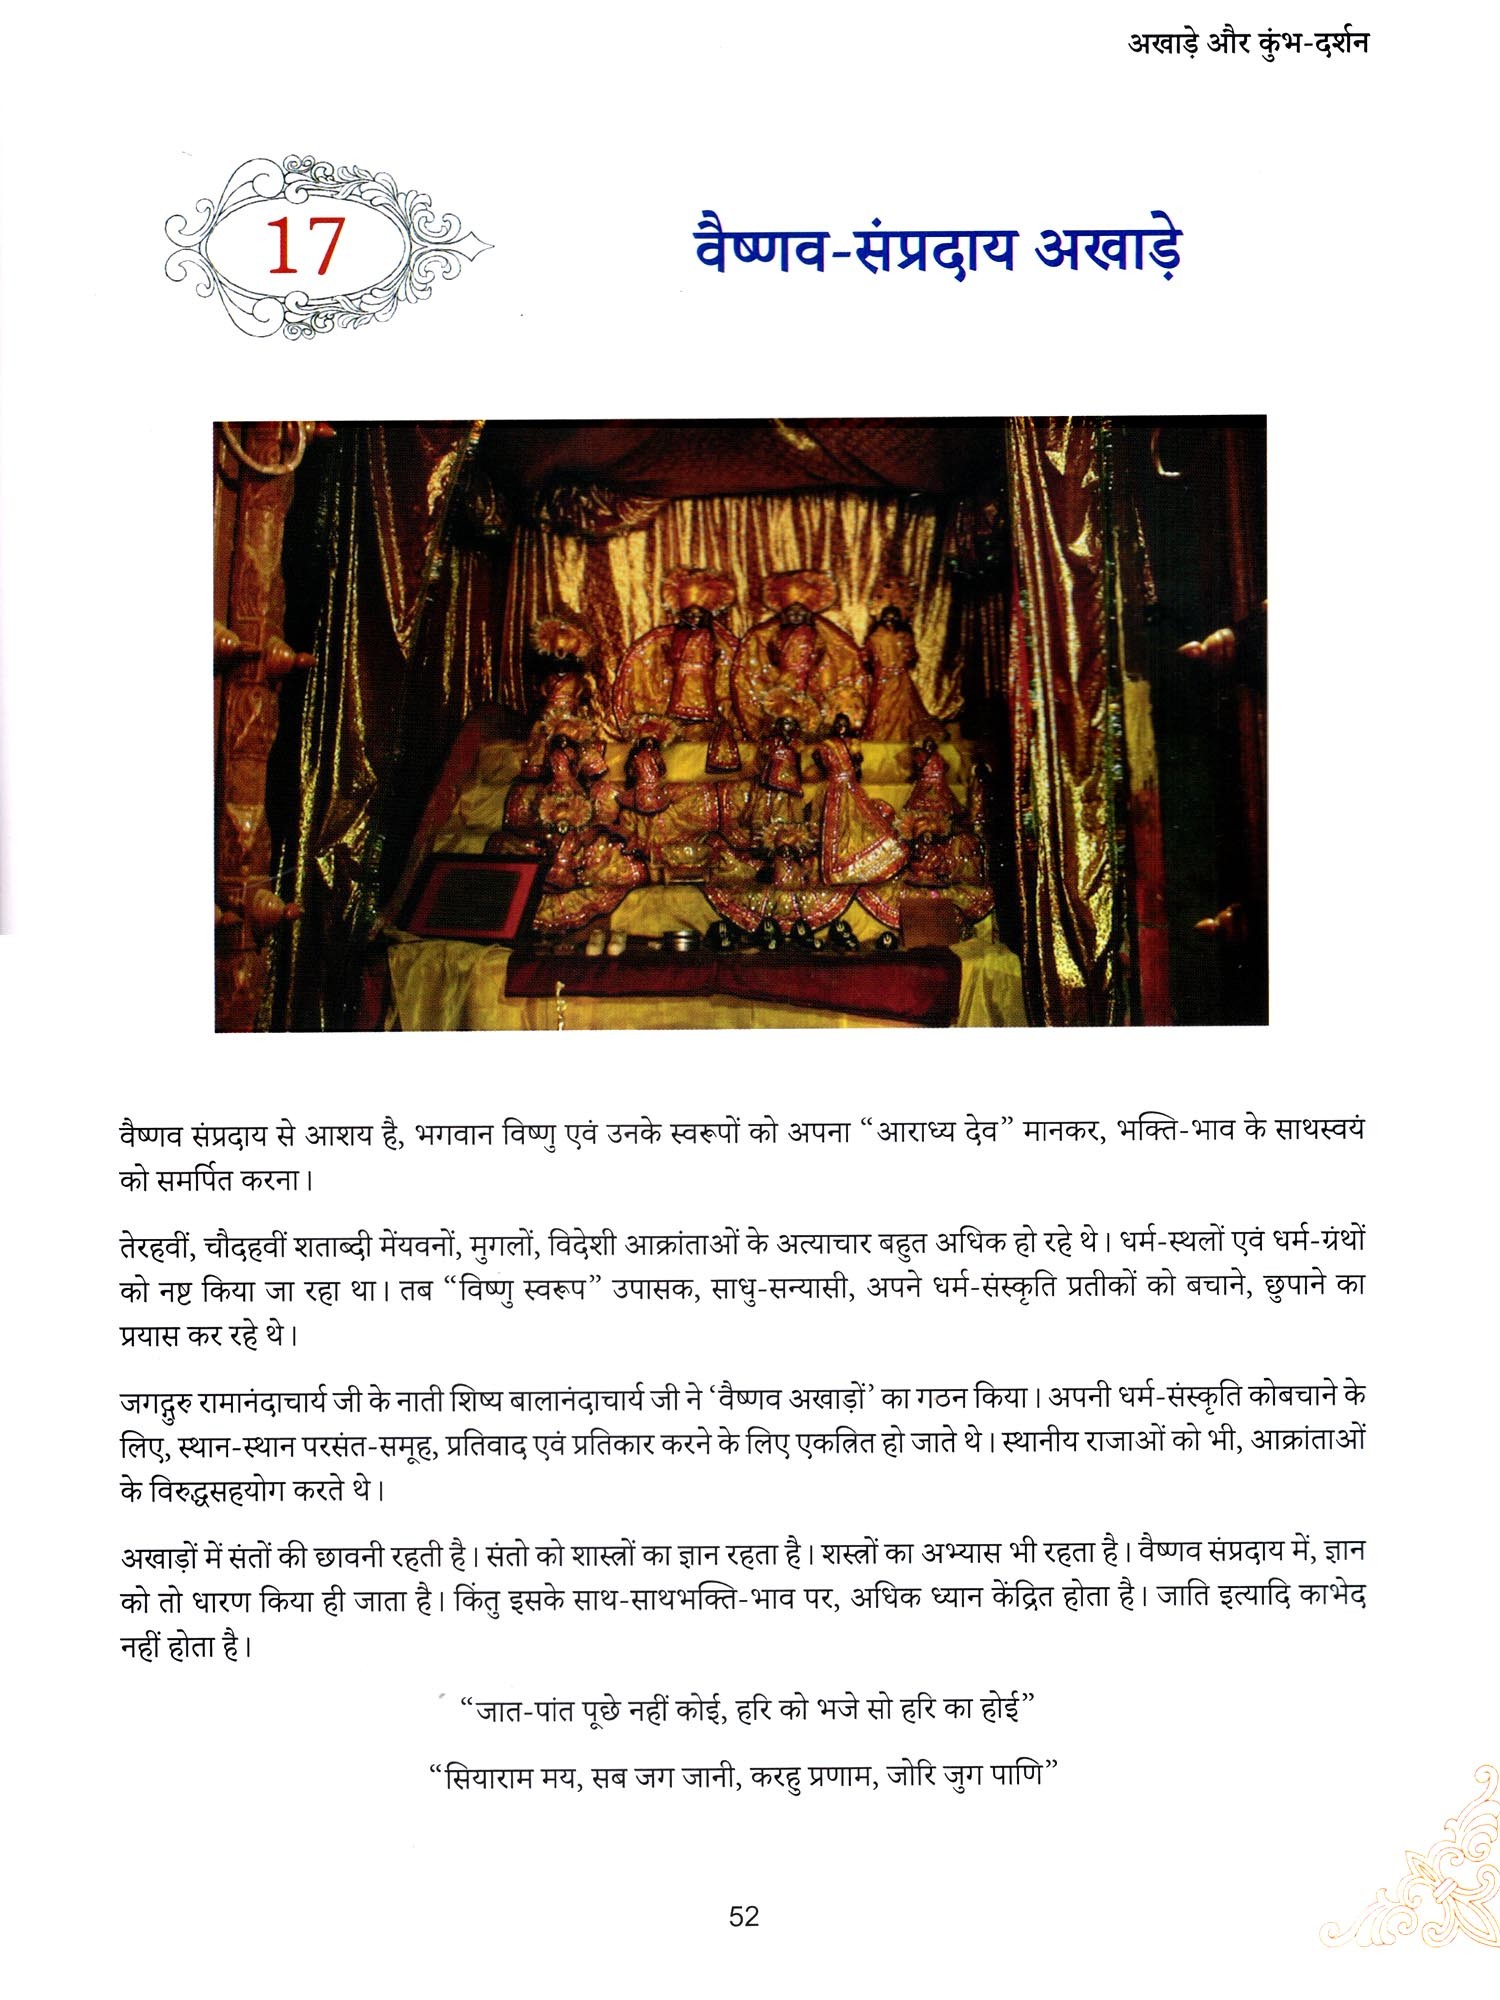 अखाड़े और कुंभ-दर्शन
17
वैष्णव-संप्रदाय अखाड़े
वैष्णव संप्रदाय से आशय है, भगवान विष्णु एवं उनके स्वरूपों को अपना “आराध्य देव” मानकर, भक्ति-भाव के साथस्वयं
को समर्पित करना।
तेरहवीं, चौदहवीं शताब्दी मेंयवनों, मुगलों, विदेशी आक्रांताओं के अत्याचार बहुत अधिक हो रहे थे। धर्म-स्थलों एवं धर्म-ग्रंथों
को नष्ट किया जा रहा था। तब “विष्णु स्वरूप” उपासक, साधु-सन्यासी, अपने धर्म-संस्कृति प्रतीकों को बचाने, छुपाने का
प्रयास कर रहे थे।
जगद्गुरु रामानंदाचार्य जी के नाती शिष्य बालानंदाचार्य जी ने ‘वैष्णव अखाड़ों’ का गठन किया। अपनी धर्म-संस्कृति कोबचाने के
लिए, स्थान-स्थान परसंत-समूह, प्रतिवाद एवं प्रतिकार करने के लिए एकत्रित हो जाते थे। स्थानीय राजाओं को भी, आक्रांताओं
के विरुद्धसहयोग करते थे।
अखाड़ों में संतों की छावनी रहती है। संतो को शास्त्रों का ज्ञान रहता है। शस्त्रों का अभ्यास भी रहता है। वैष्णव संप्रदाय में, ज्ञान
को तो धारण किया ही जाता है। किंतु इसके साथ-साथभक्ति-भाव पर, अधिक ध्यान केंद्रित होता है। जाति इत्यादि काभेद
नहीं होता है।
“जात-पांत पूछे नहीं कोई, हरि को भजे सो हरि का होई”
“सियाराम मय, सब जग जानी, करहु प्रणाम, जोरि जुग पाणि”
52